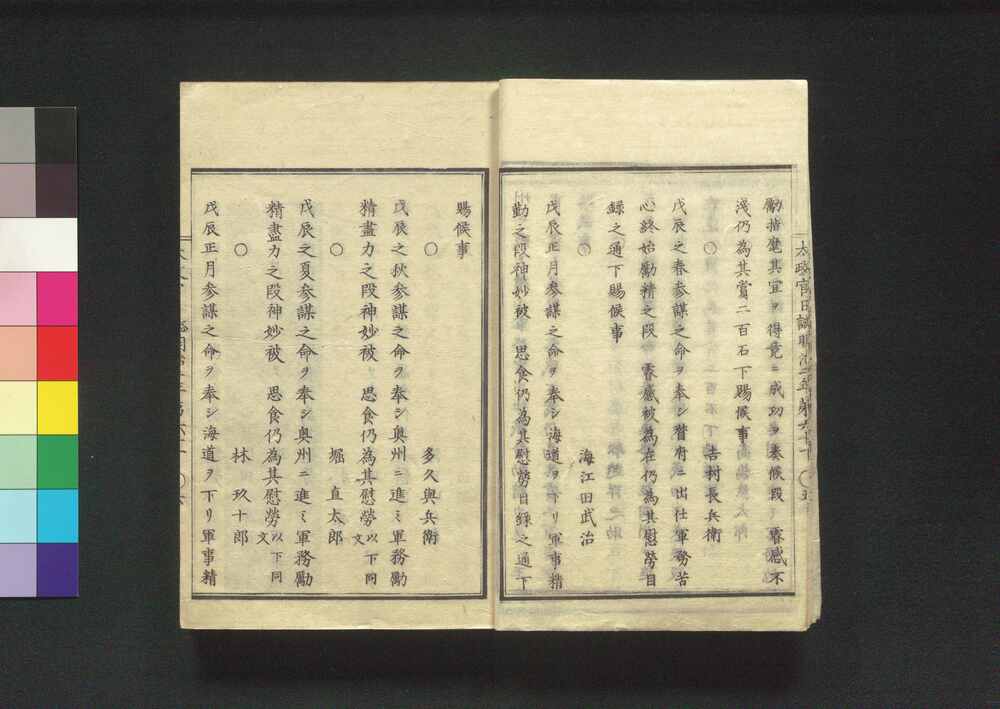 太政官日誌明治二年第六十一 〇五
勵措置其宜ヲ得竟ニ成功ヲ奏候段 睿感不
淺仍為其賞二百石下賜候事
〇 吉村長兵衛
戊辰之春參謀之命ヲ奉シ督府ニ出仕軍務苦
心終始勵精之段 睿感被為在仍為其慰勞目
錄之通下賜候事
〇 海江田武治
戊辰正月參謀之命ヲ奉シ海道ヲ下リ軍事精
勤之段神妙被 思食仍為其慰勞目錄之通下
賜候事
〇 多久與兵衛
戊辰之秋參謀之命ヲ奉シ奥州ニ進ミ軍務勵
精盡力之段神妙被 思食仍為其慰勞以下同文
〇 堀直太郎
戊辰之夏參謀之命ヲ奉シ奥州ニ進ミ軍務勵
精盡力之段神妙被 思食仍為其慰勞以下同文
〇 林玖十郎
戊辰正月參謀之命ヲ奉シ海道ヲ下リ軍事精